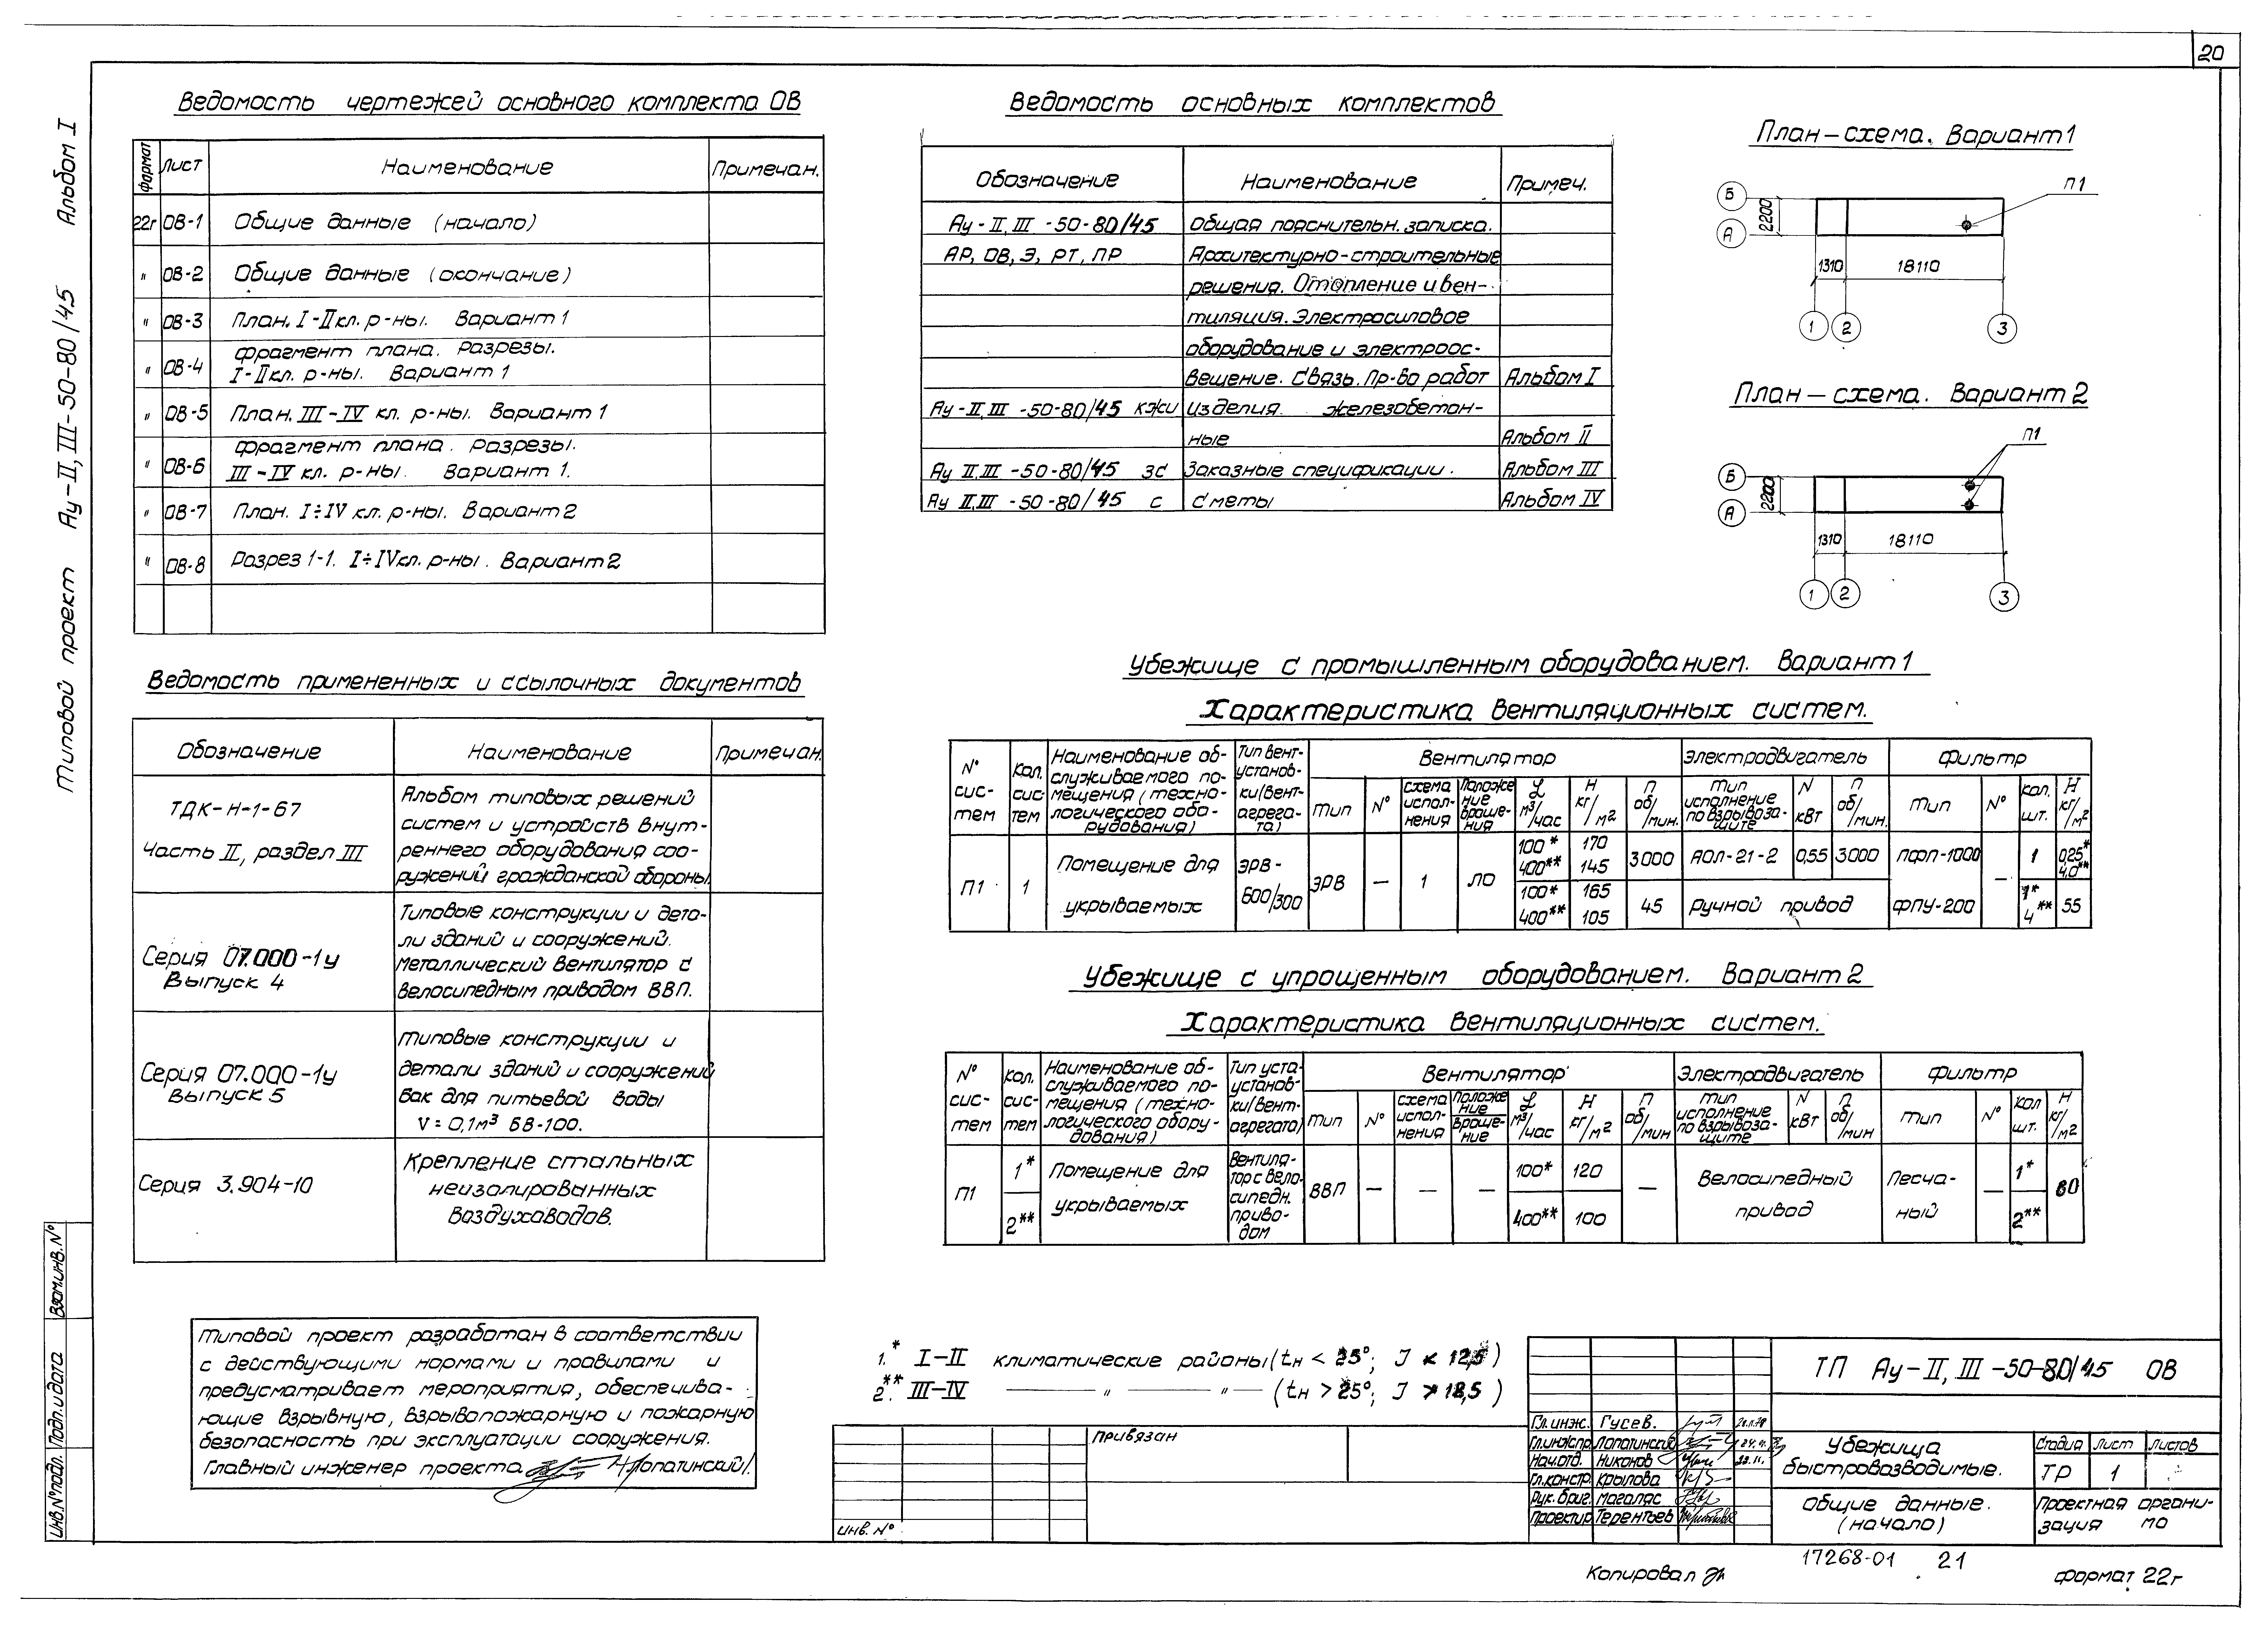 20
Типовой проект Ау-II,III-50-80/45 Альбом I
Ведомость чертежей основного комплекта ОВ
Формат Лист Наименование Примечан.
22г ОВ-1 Общие данные (начало)
" ОВ-2 Общие данные (окончание)
" ОВ-3 План. I-II кл. р-ны. Вариант 1
" ОВ-4 Фрагмент плана. Разрезы.
I-II кл. р-ны. Вариант 1
" ОВ-5 План. III-IV кл. р-ны. Вариант 1
" ОВ-6 Фрагмент плана. Разрезы.
III-IV кл. р-ны. Вариант 1.
" ОВ-7 План. I÷IV кл. р-ны. Вариант 2
" ОВ-8 Разрез 1-1. I÷IV кл. р-ны. Вариант 2
Ведомость примененных и ссылочных документов
Обозначение Наименование Примечан.
ТДК-Н-1-67
Часть II, раздел III
Альбом типовых решений
систем и устройств внут-
реннего оборудования соо-
ружений гражданской обороны.
Серия 07.000-1у
Выпуск 4
Типовые конструкции и дета-
ли зданий и сооружений.
Металлический вентилятор с
велосипедным приводом ВВП.
Серия 07.000-1у
Выпуск 5
Типовые конструкции и
детали зданий и сооружений
бак для питьевой воды
V = 0,1м³ БВ-100.
Серия 3.904-10
Крепление стальных
неизолированных
воздуховодов.
Типовой проект разработан в соответствии
с действующими нормами и правилами и
предусматривает мероприятия, обеспечива-
ющие взрывную, взрывопожарную и пожарную
безопасность при эксплуатации сооружения.
Главный инженер проекта /Лопатинский/.
Ведомость основных комплектов
Обозначение Наименование Примеч.
Ау-II,III-50-80/45 Общая пояснительн. записка.
АР, ОВ, Э, РТ, ПР Архитектурно-строительные
решения. Отопление и вен-
тиляция. Электросиловое
оборудование и электроос-
вещение. Связь. Пр-во работ Альбом I
Ау-II,III-50-80/45 КЖИ Изделия железобетон-
ные Альбом II
Ау II,III-50-80/45 ЗС Заказные спецификации. Альбом III
Ау II,III-50-80/45 С Сметы Альбом IV
План-схема. Вариант 1
П1
Б
А
2200
1310 18110
1 2 3
План-схема. Вариант 2
П1
Б
А
2200
1310 18110
1 2 3
Убежище с промышленным оборудованием. Вариант 1
Характеристика вентиляционных систем.
N° сис-тем
Кол. сис-тем
Наименование об-служиваемого по-мещения (техно-логического обо-рудования)
Тип вент-установ-ки (вент-агрега-та)
Вентилятор
Тип N° Схема испол-нения Положе-ние враще-ния L м³/час H кг/м² n об/мин.
Электродвигатель
Тип исполнение по взрывоза-щите N кВт n об/мин.
Фильтр
Тип N° кол. шт. H кг/м²
П1 1 Помещение для укрываемых ЭРВ-600/300 ЭРВ — 1 ЛО
100* 170
400** 145
3000 АОЛ-21-2 0,55 3000 ПФП-1000 — 1 0,25* 4,0**
100* 165
400** 105
45 Ручной привод ФПУ-200 1* 4** 55
Убежище с упрощенным оборудованием. Вариант 2
Характеристика вентиляционных систем.
N° сис-тем
Кол. сис-тем
Наименование об-служиваемого по-мещения (техно-логического обору-дования)
Тип уста-установ-ки (вент-агрегата)
Вентилятор
Тип N° Схема испол-нения Положе-ние враще-ние L м³/час H кг/м² n об/мин
Электродвигатель
Тип исполнение по взрывоза-щите N кВт n об/мин
Фильтр
Тип N° кол шт. H кг/м²
П1 1* 2** Помещение для укрываемых Вентиля-тор с вело-сипедн. приво-дом ВВП — — —
100* 120
400** 100
— Велосипедный привод Песча-ный — 1* 2** 80
1.* I-II климатические районы (tн < 25°; J < 12,5)
2.** III-IV —"— —"— (tн > 25°; J > 12,5)
Привязан
Инв. N°
Взам.инв. N°
Подп. и дата
Инв. N° подл.
ТП Ау-II,III-50-80/45 ОВ
Гл.инж. Гусев.
Гл.инж.пр. Лопатинский
Нач.отд. Никонов
Гл.констр. Крылова
Рук.бриг. Магаляс
Проектир. Терентьев
Убежища
быстровозводимые.
Стадия Лист Листов
ТР 1
Общие данные.
(начало)
Проектная органи-
зация МО
17268-01 21
Копировал
Формат 22г